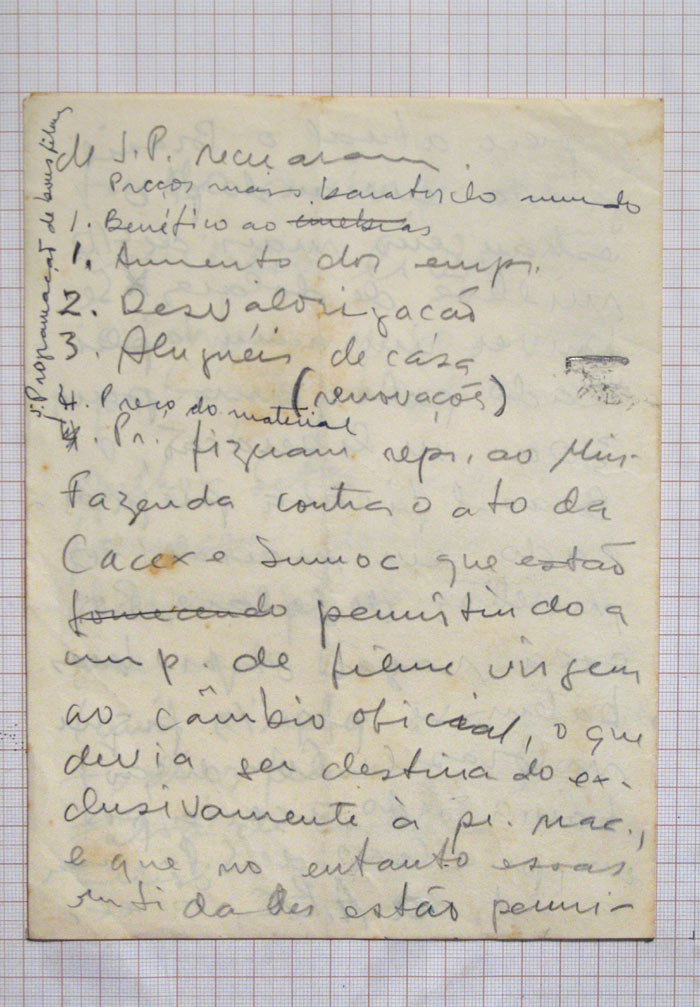 de S.P. recusaram.
Preços mais baratos do mundo
1. Benéfico ao cinebras
1. Aumento dos emp.
2. Desvalorização
3. Aluguéis de casa
(renovações)
4. Preço do material
5. Programação de bons films
Pr. fizeram repr. ao Min.
Fazenda contra o ato da
Cacex e Sumoc que estão
fornecendo permitindo a
imp. de filme virgem
ao câmbio oficial, o que
devia ser destinado ex-
clusivamente à pr. nac.,
e que no entanto essas
entidades estão permi-